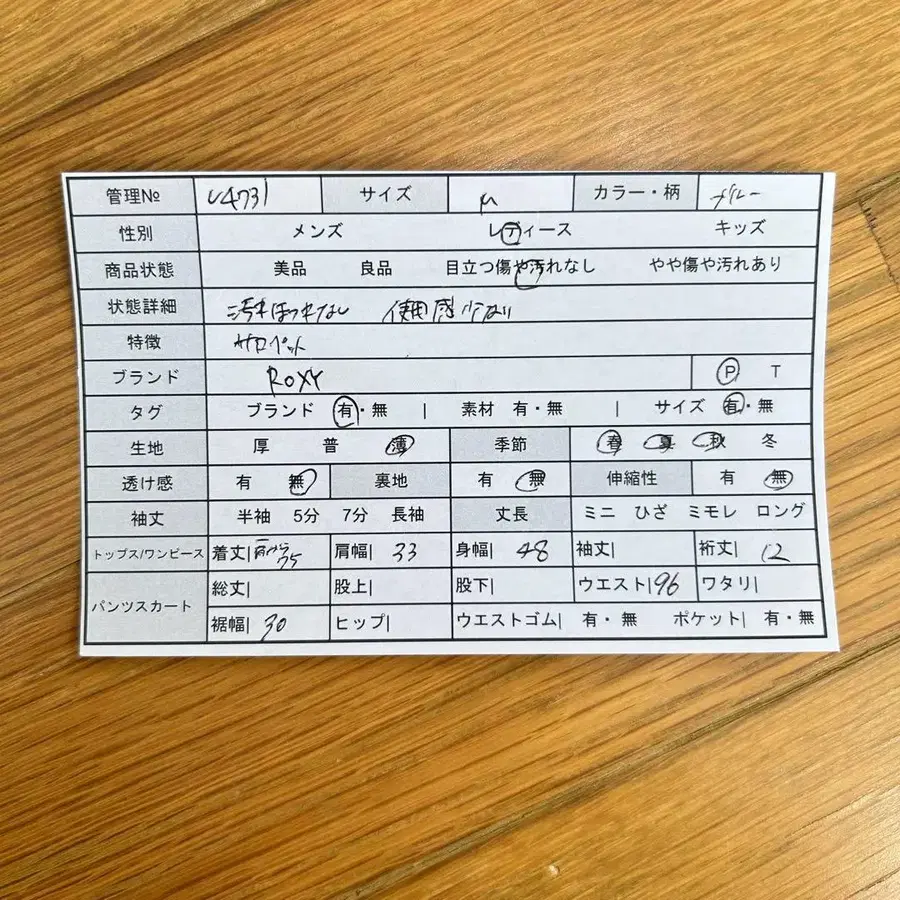 管理№ U4731 サイズ M カラー・柄 ブルー
性別 メンズ レディース キッズ
商品状態 美品 良品 目立つ傷や汚れなし やや傷や汚れあり
状態詳細 汚れほつれなし 使用感少なり
特徴 サロペット
ブランド ROXY P T
タグ ブランド 有・無 | 素材 有・無 | サイズ 有・無
生地 厚 普 薄 季節 春 夏 秋 冬
透け感 有 無 裏地 有 無 伸縮性 有 無
袖丈 半袖 5分 7分 長袖 丈長 ミニ ひざ ミモレ ロング
トップス/ワンピース 着丈| 肩から75 肩幅| 33 身幅| 48 袖丈| 裄丈| 12
パンツスカート 総丈| 股上| 股下| ウエスト| 96 ワタリ|
裾幅| 30 ヒップ| ウエストゴム| 有・無 ポケット| 有・無